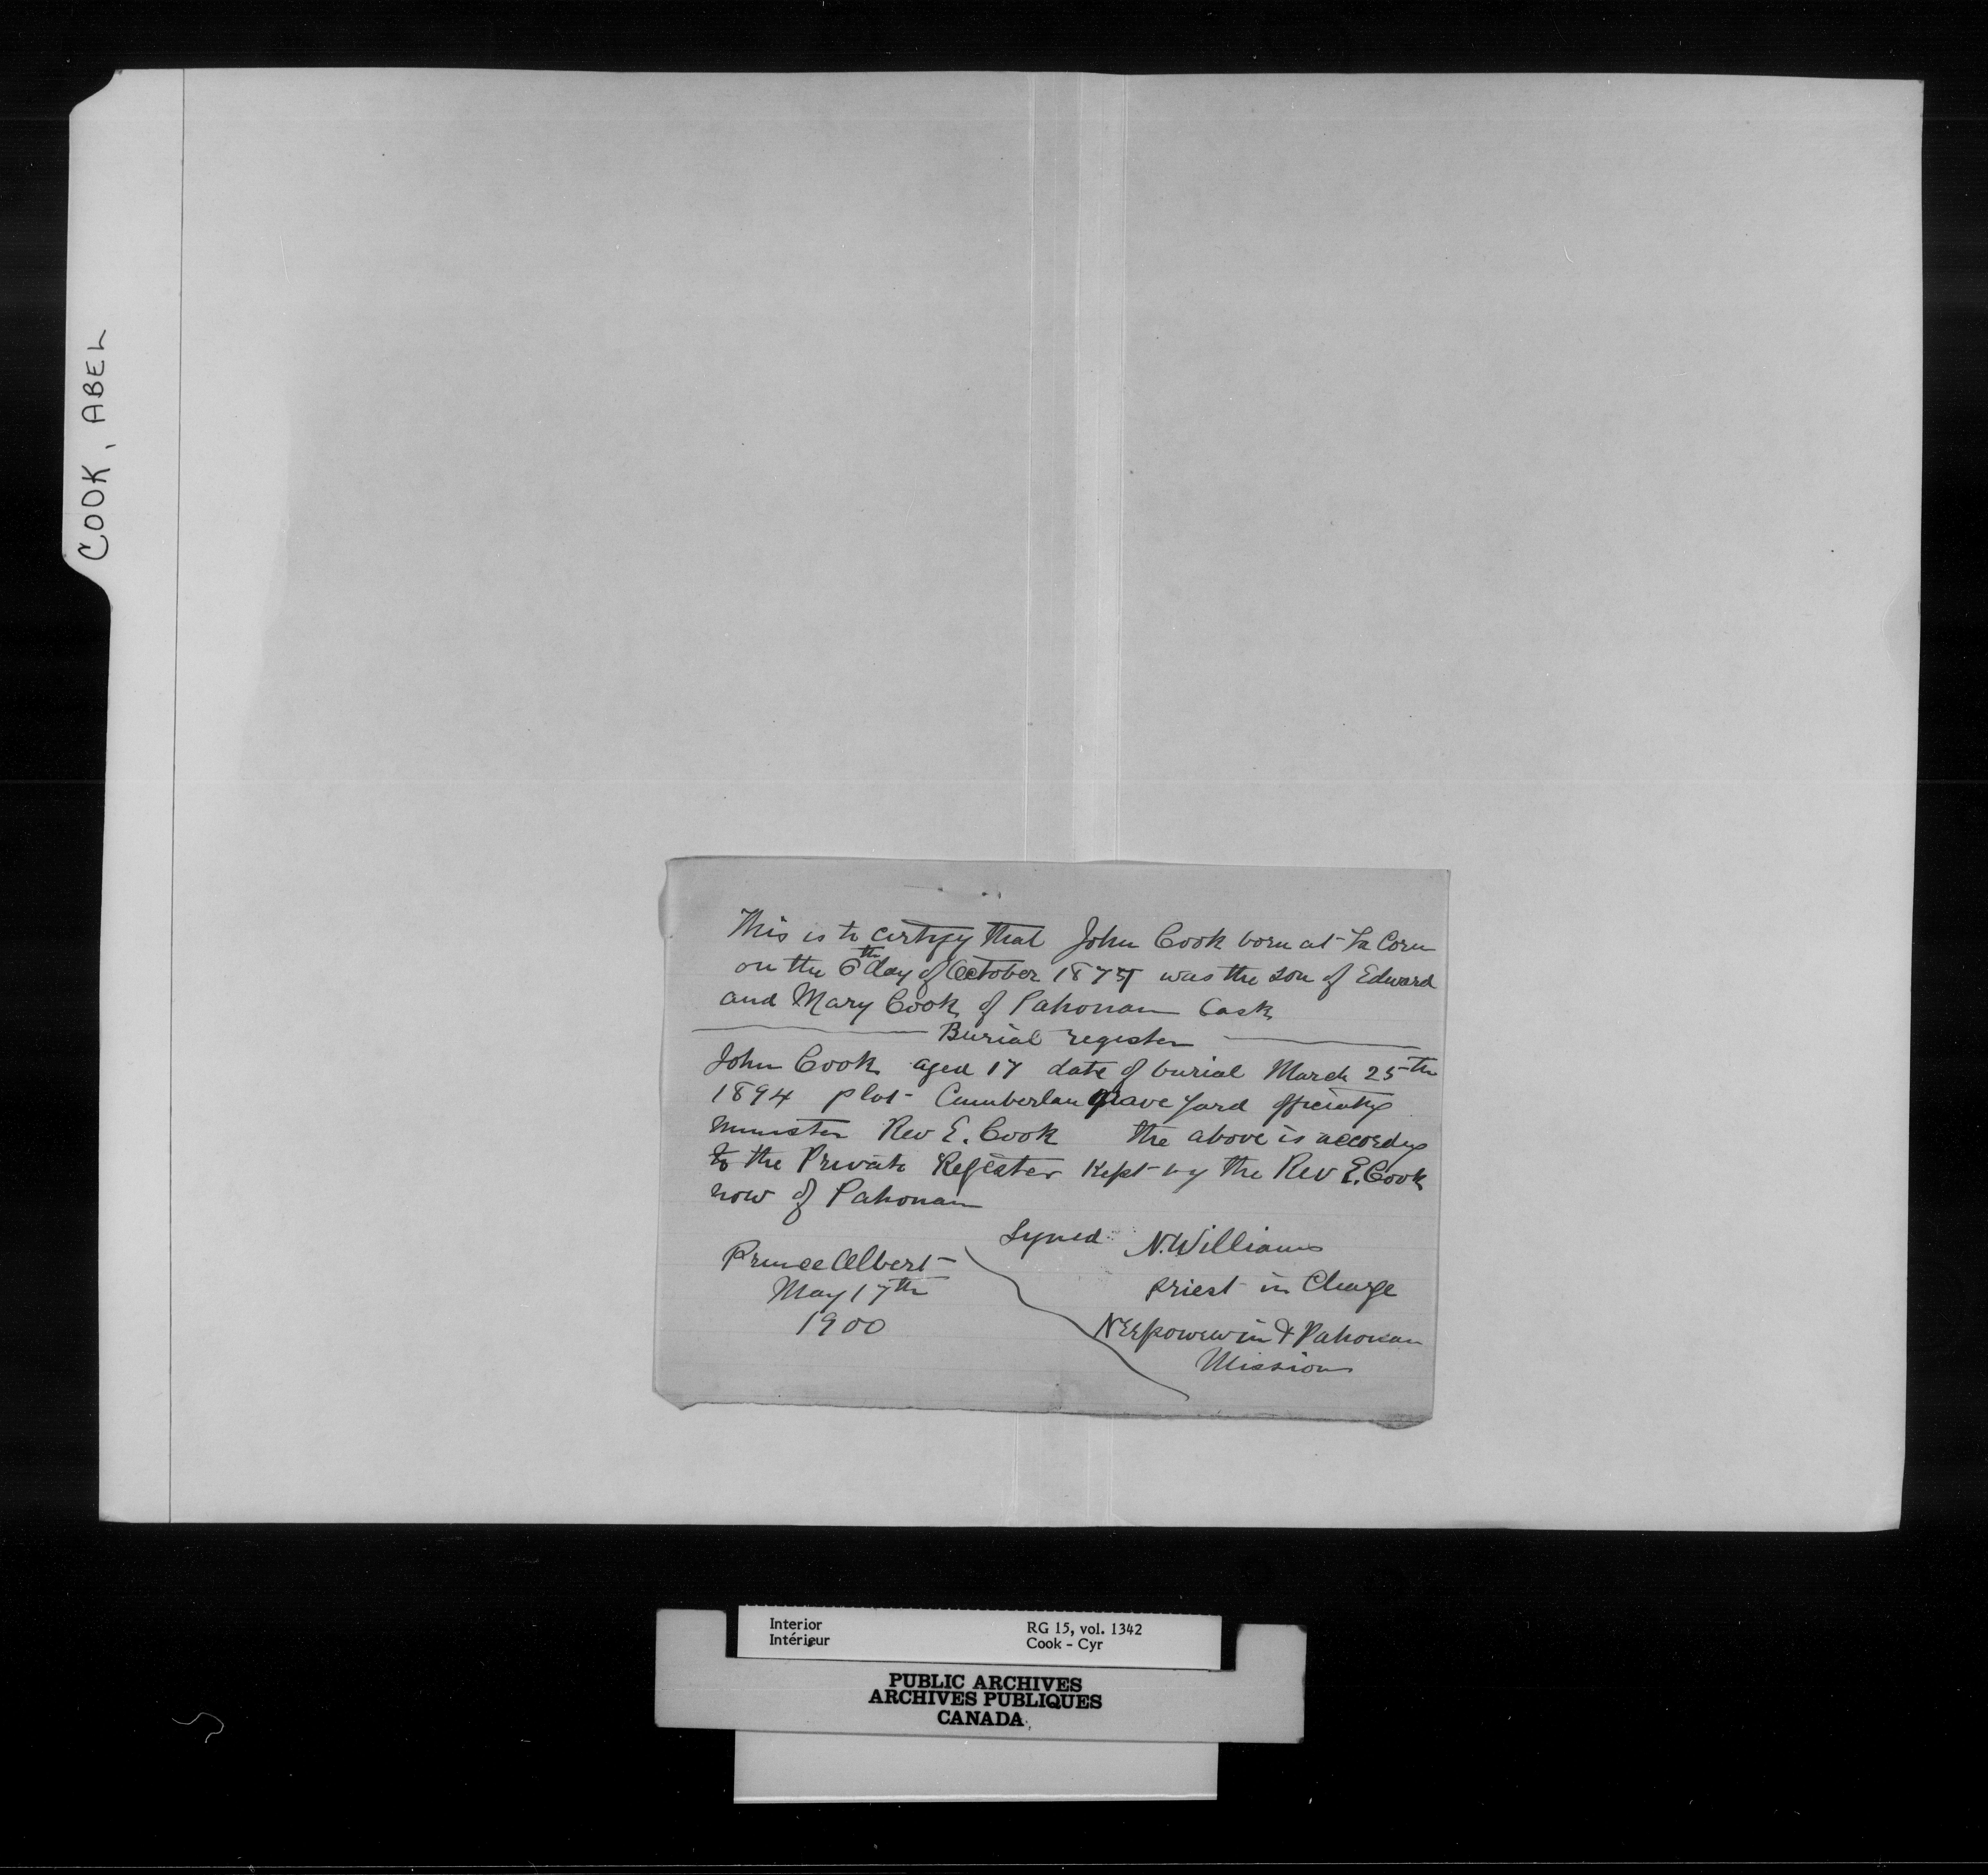 COOK, ABEL
This is to certify that John Cook born at La Corn
on the 6th day of October 187 was the son of Edward
and Mary Cook of Pahonan Sask
Burial register
John Cook aged 17 date of burial March 25th
1894 plot Cumberlan Grave Yard
minister Rev E. Cook the above is
to the Private Register kept by the Rev E. Cook
now of Pahonan
Signed N. Williams
Prince Albert
priest in Charge
May 17th
1900
Neepowewin & Pahonan
Mission
Interior RG 15, vol. 1342
Intérieur Cook - Cyr
PUBLIC ARCHIVES
ARCHIVES PUBLIQUES
CANADA